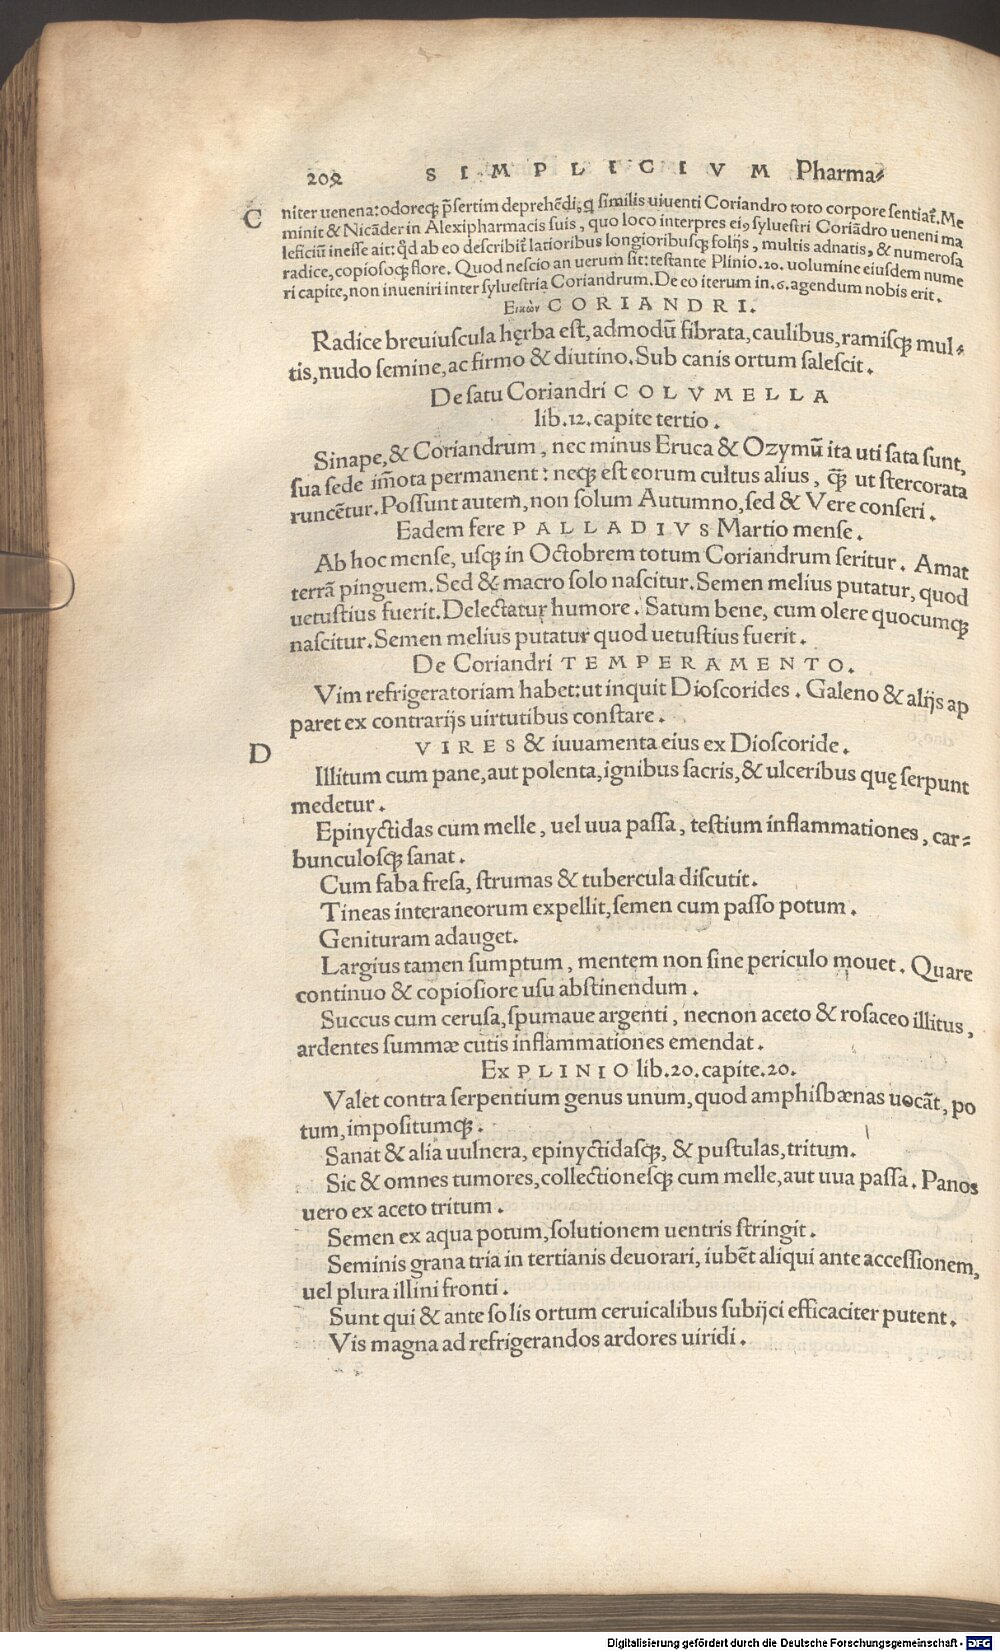 202 SIMPLICIVM Pharma-
C niter uenena: odoreq̃ p̃sertim deprehēdi, q̃ similis uiuenti Coriandro toto corpore sentiat̃. Me
minit & Nicāder in Alexipharmacis suis, quo loco interpres eiꝰ syluestri Coriādro ueneni ma
leficiū inesse ait: q̃d ab eo describit̃ latioribus longioribusq̃ folijs, multis adnatis, & numerosa
radice, copiosoq̃ flore. Quod nescio an uerum sit: testante Plinio. 20. uolumine eiusdem nume
ri capite, non inueniri inter syluestria Coriandrum. De eo iterum in .6. agendum nobis erit.
Εικὼν CORIANDRI.
Radice breuiuscula hęrba est, admodū fibrata, caulibus, ramisq̃ mul-
tis, nudo semine, ac firmo & diutino. Sub canis ortum salescit.
De satu Coriandri COLVMELLA
lib. 12. capite tertio.
Sinape, & Coriandrum, nec minus Eruca & Ozymū ita uti sata sunt,
sua sede im̄ota permanent: neq̃ est eorum cultus alius, q̃ ut stercorata
runcētur. Possunt autem, non solum Autumno, sed & Vere conseri.
Eadem fere PALLADIVS Martio mense.
Ab hoc mense, usq̃ in Octobrem totum Coriandrum seritur. Amat
terrā pinguem. Sed & macro solo nascitur. Semen melius putatur, quod
uetustius fuerit. Delectatur humore. Satum bene, cum olere quocumq̃
nascitur. Semen melius putatur quod uetustius fuerit.
De Coriandri TEMPERAMENTO.
Vim refrigeratoriam habet: ut inquit Dioscorides. Galeno & alijs ap
paret ex contrarijs uirtutibus constare.
D VIRES & iuuamenta eius ex Dioscoride.
Illitum cum pane, aut polenta, ignibus sacris, & ulceribus quę serpunt
medetur.
Epinyctidas cum melle, uel uua passa, testium inflammationes, car-
bunculosq̃ sanat.
Cum faba fresa, strumas & tubercula discutit.
Tineas interaneorum expellit, semen cum passo potum.
Genituram adauget.
Largius tamen sumptum, mentem non sine periculo mouet. Quare
continuo & copiosiore usu abstinendum.
Succus cum cerusa, spumaue argenti, necnon aceto & rosaceo illitus,
ardentes summæ cutis inflammationes emendat.
Ex PLINIO lib. 20. capite. 20.
Valet contra serpentium genus unum, quod amphisbænas uocāt, po
tum, impositumq̃.
Sanat & alia uulnera, epinyctidasq̃, & pustulas, tritum.
Sic & omnes tumores, collectionesq̃ cum melle, aut uua passa. Panos
uero ex aceto tritum.
Semen ex aqua potum, solutionem uentris stringit.
Seminis grana tria in tertianis deuorari, iubēt aliqui ante accessionem,
uel plura illini fronti.
Sunt qui & ante solis ortum ceruicalibus subijci efficaciter putent.
Vis magna ad refrigerandos ardores uiridi.
Digitalisierung gefördert durch die Deutsche Forschungsgemeinschaft - DFG